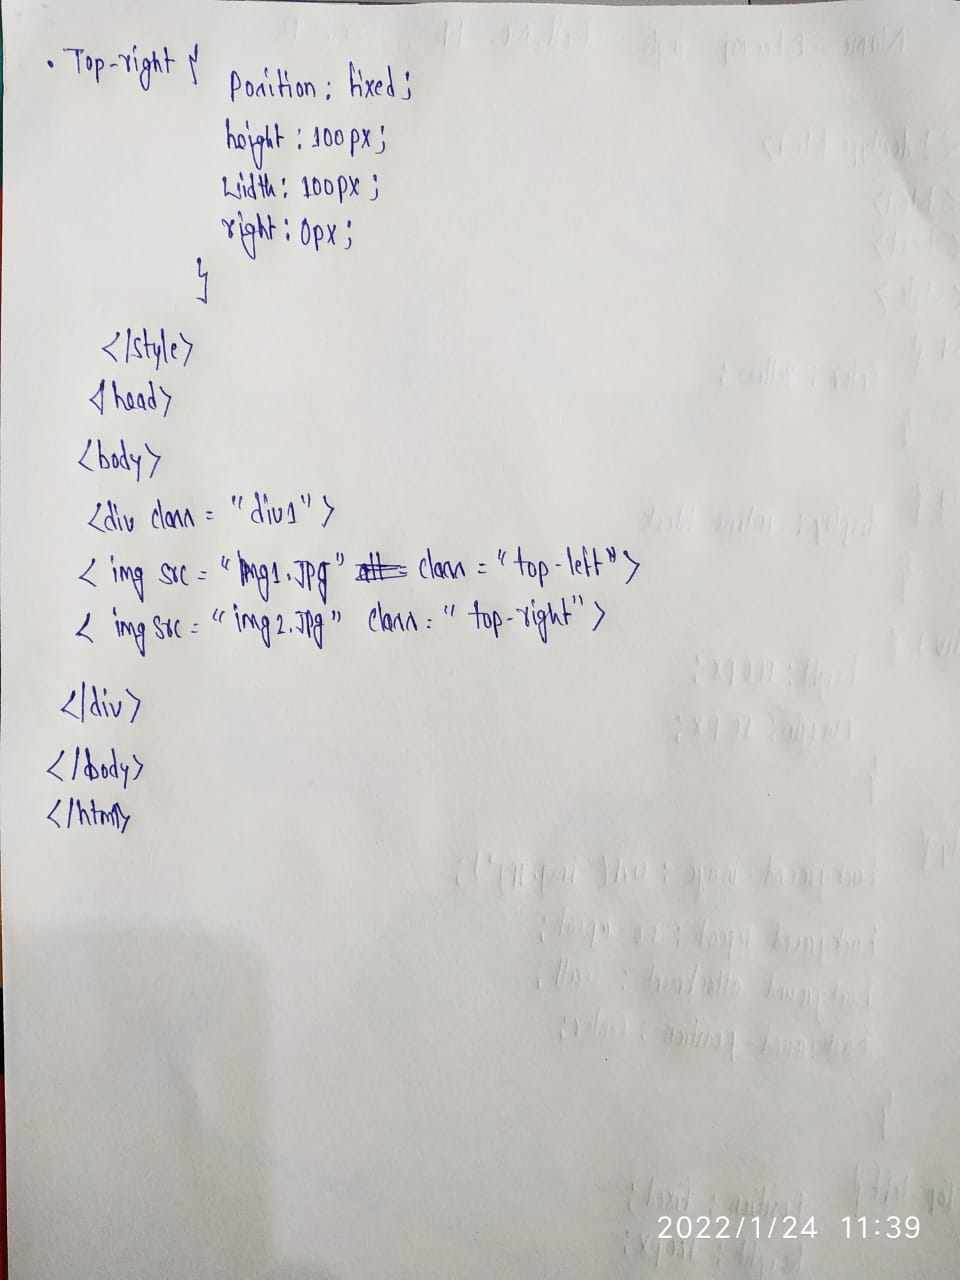 . Top-right {
Position : fixed ;
height : 100px ;
Width : 100px ;
right : 0px ;
}
</style>
</head>
<body>
<div class = "div1">
< img src = "img1.jpg" class = "top-left">
< img src = "img2.jpg" class = "top-right">
</div>
</body>
</html>
2022/1/24 11:39